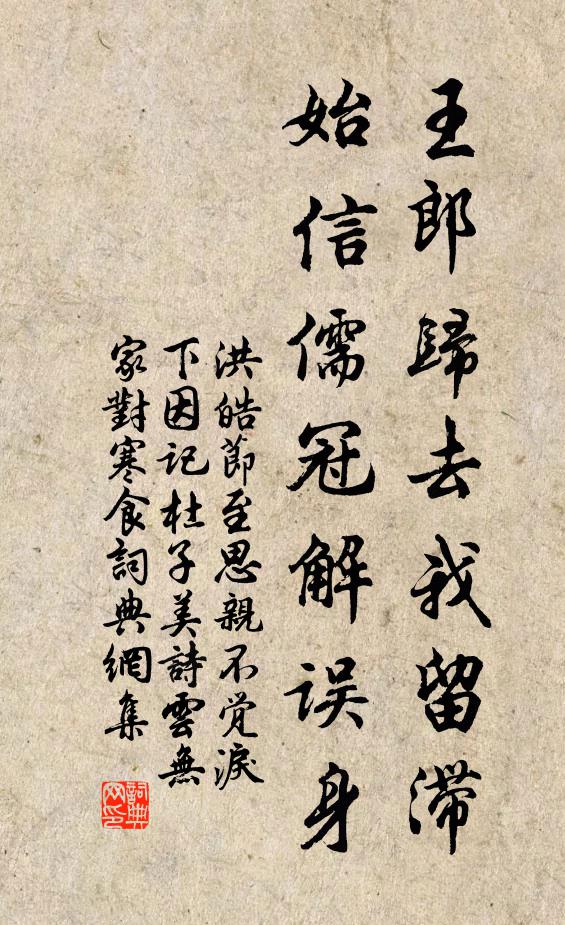 王郎歸去我留滞
始信儒冠解误身
洪皓節至思親不觉淚
下因记杜子美詩雲無
家對寒食詞典網集
詞典网印